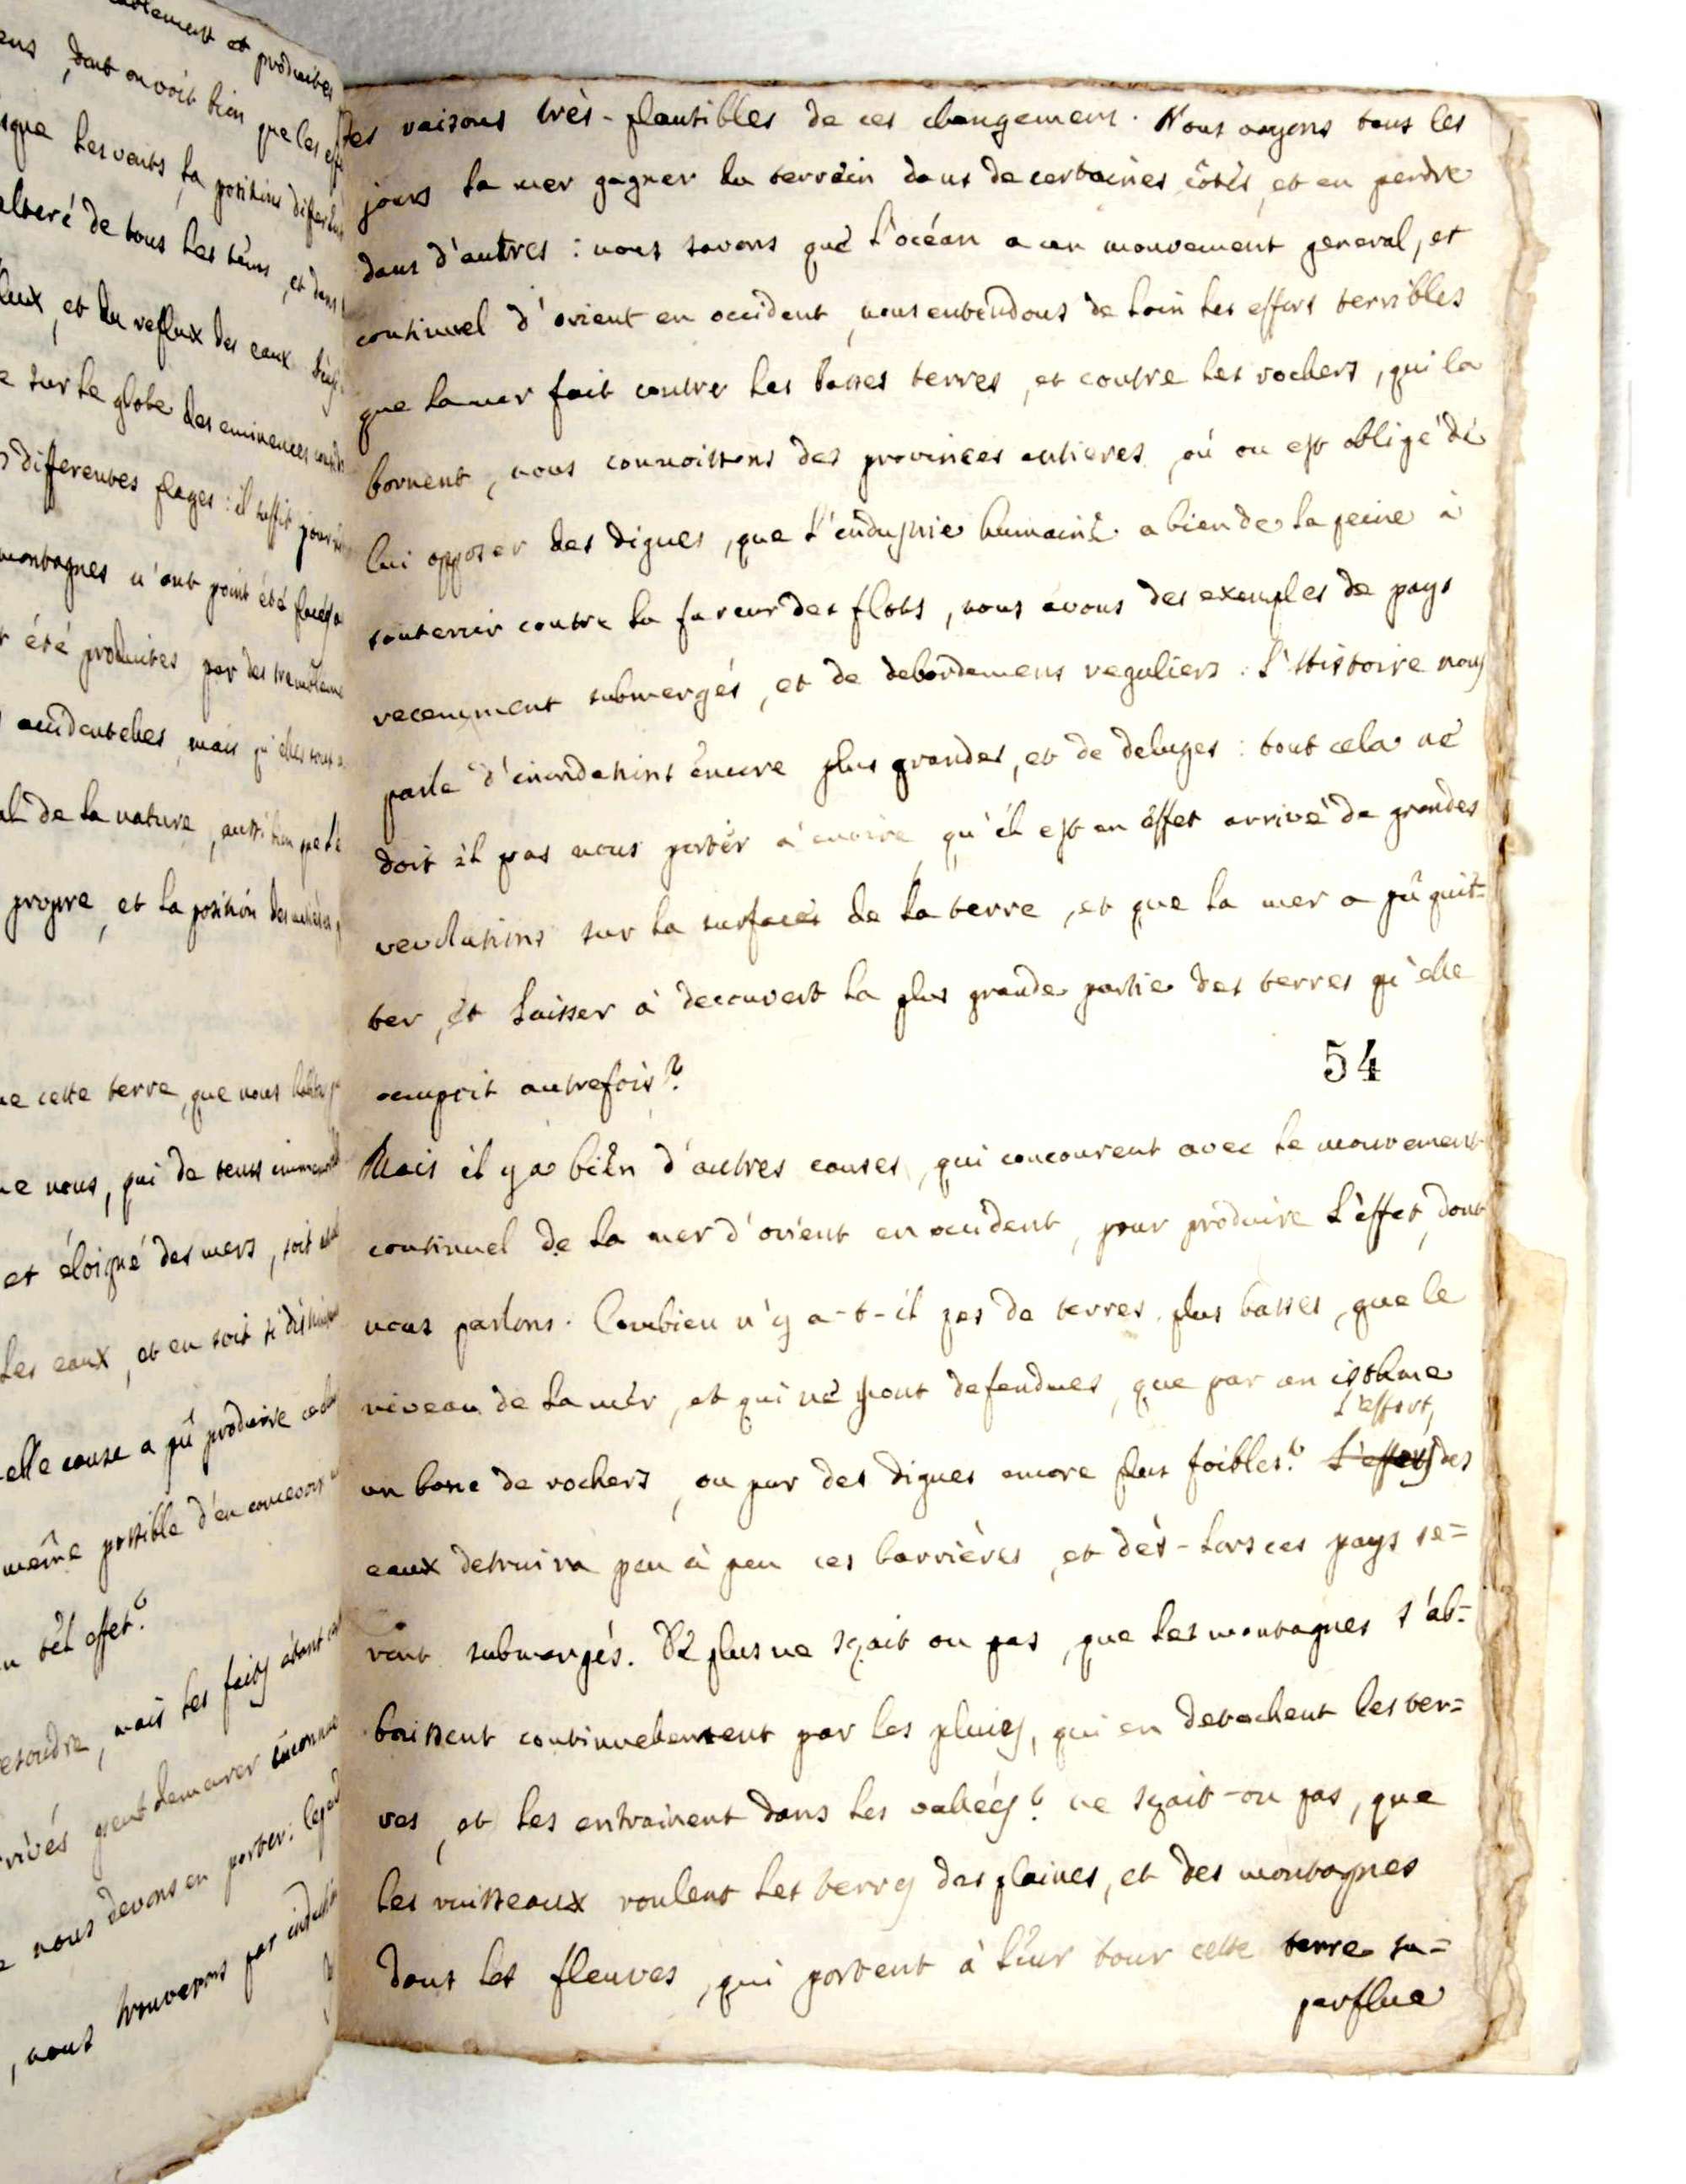 ablement et produites
ens, dont on voit bien que les eff
sque les vents, la positions diferen
alteré de tous les têms, et dans
lux, et du reflux des eaux
e sur le globe des eminences
s differentes plages : il suffit pour
montagnes n'ont point été
r été produites par des trembleme
accidentelles, mais qu'elles sont
al de la nature, aussi bien que le
propre, et la position des
ue cette terre, que nous
ue nous, qui de tems
et éloigné des mers, soit
les eaux, et en soit si
elle cause a pû produire
même possible d'en concevoir
n têl effet?
esoudre, mais les faits étant
rrivés peut demeurer inconnue
nous devons en porter:
, nous trouverons par
des raisons très-plausibles de ces changemens. Nous voyons tous les
jours la mer gagner du terrein dans de certaines côtés, et en perdre
dans d'autres : nous savons que l'océan a un mouvement general, et
continuel d'orient en occident, nous entendons de loin les effors terribles
que la mer fait contre les basses terres, et contre les rochers, qui la
bornent, nous connoissons des provinces entieres, où on est obligé de
lui opposer des digues, que l'industrie humaine a bien de la peine à
soutenir contre la fureur des flots, nous avons des exemples de pays
recemment submergés, et de debordemens reguliers : L'Histoire nous
parle d'inondations encore plus grandes, et de deluges : tout cela ne
doit il pas nous porter à croire, qu'il est en effet arrivé de grandes
revolutions sur la surface de la terre, et que la mer a pû quit=
ter, et laisser à decouvert la plus grande partie des terres qu'elle
occupoit autrefois?
54
Mais il y a bien d'autres causes, qui concourent avec le mouvement
continuel de la mer d'orient en occident, pour produire l'effet, dont
nous parlons. Combien n'y a-t-il pas de terres plus basses, que le
niveau de la mer, et qui ne sont defendues, que par un isthme
un banc de rochers, ou par des digues encore plus foibles? L'effort, des
eaux detruira peu à peu ces barrières, et dès-lors ces pays se=
ront submergés. De plus ne sçait on pas, que les montagnes s'ab=
baissent continuellement par les pluies, qui en detachent les ter=
res, et les entrainent dans les vallées? ne sçait-on pas, que
les ruisseaux roulent les terres des plaines, et des montagnes
dans les fleuves, qui portent à leur tour cette terre su=
perflue